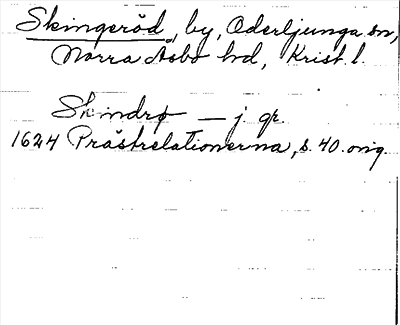 Skingeröd, by, Oderljunga sn,
Norra Åsbo hd, Krist. l.
Skindrø — j. gr.
1624 Prästrelationerna, s. 40. orig.